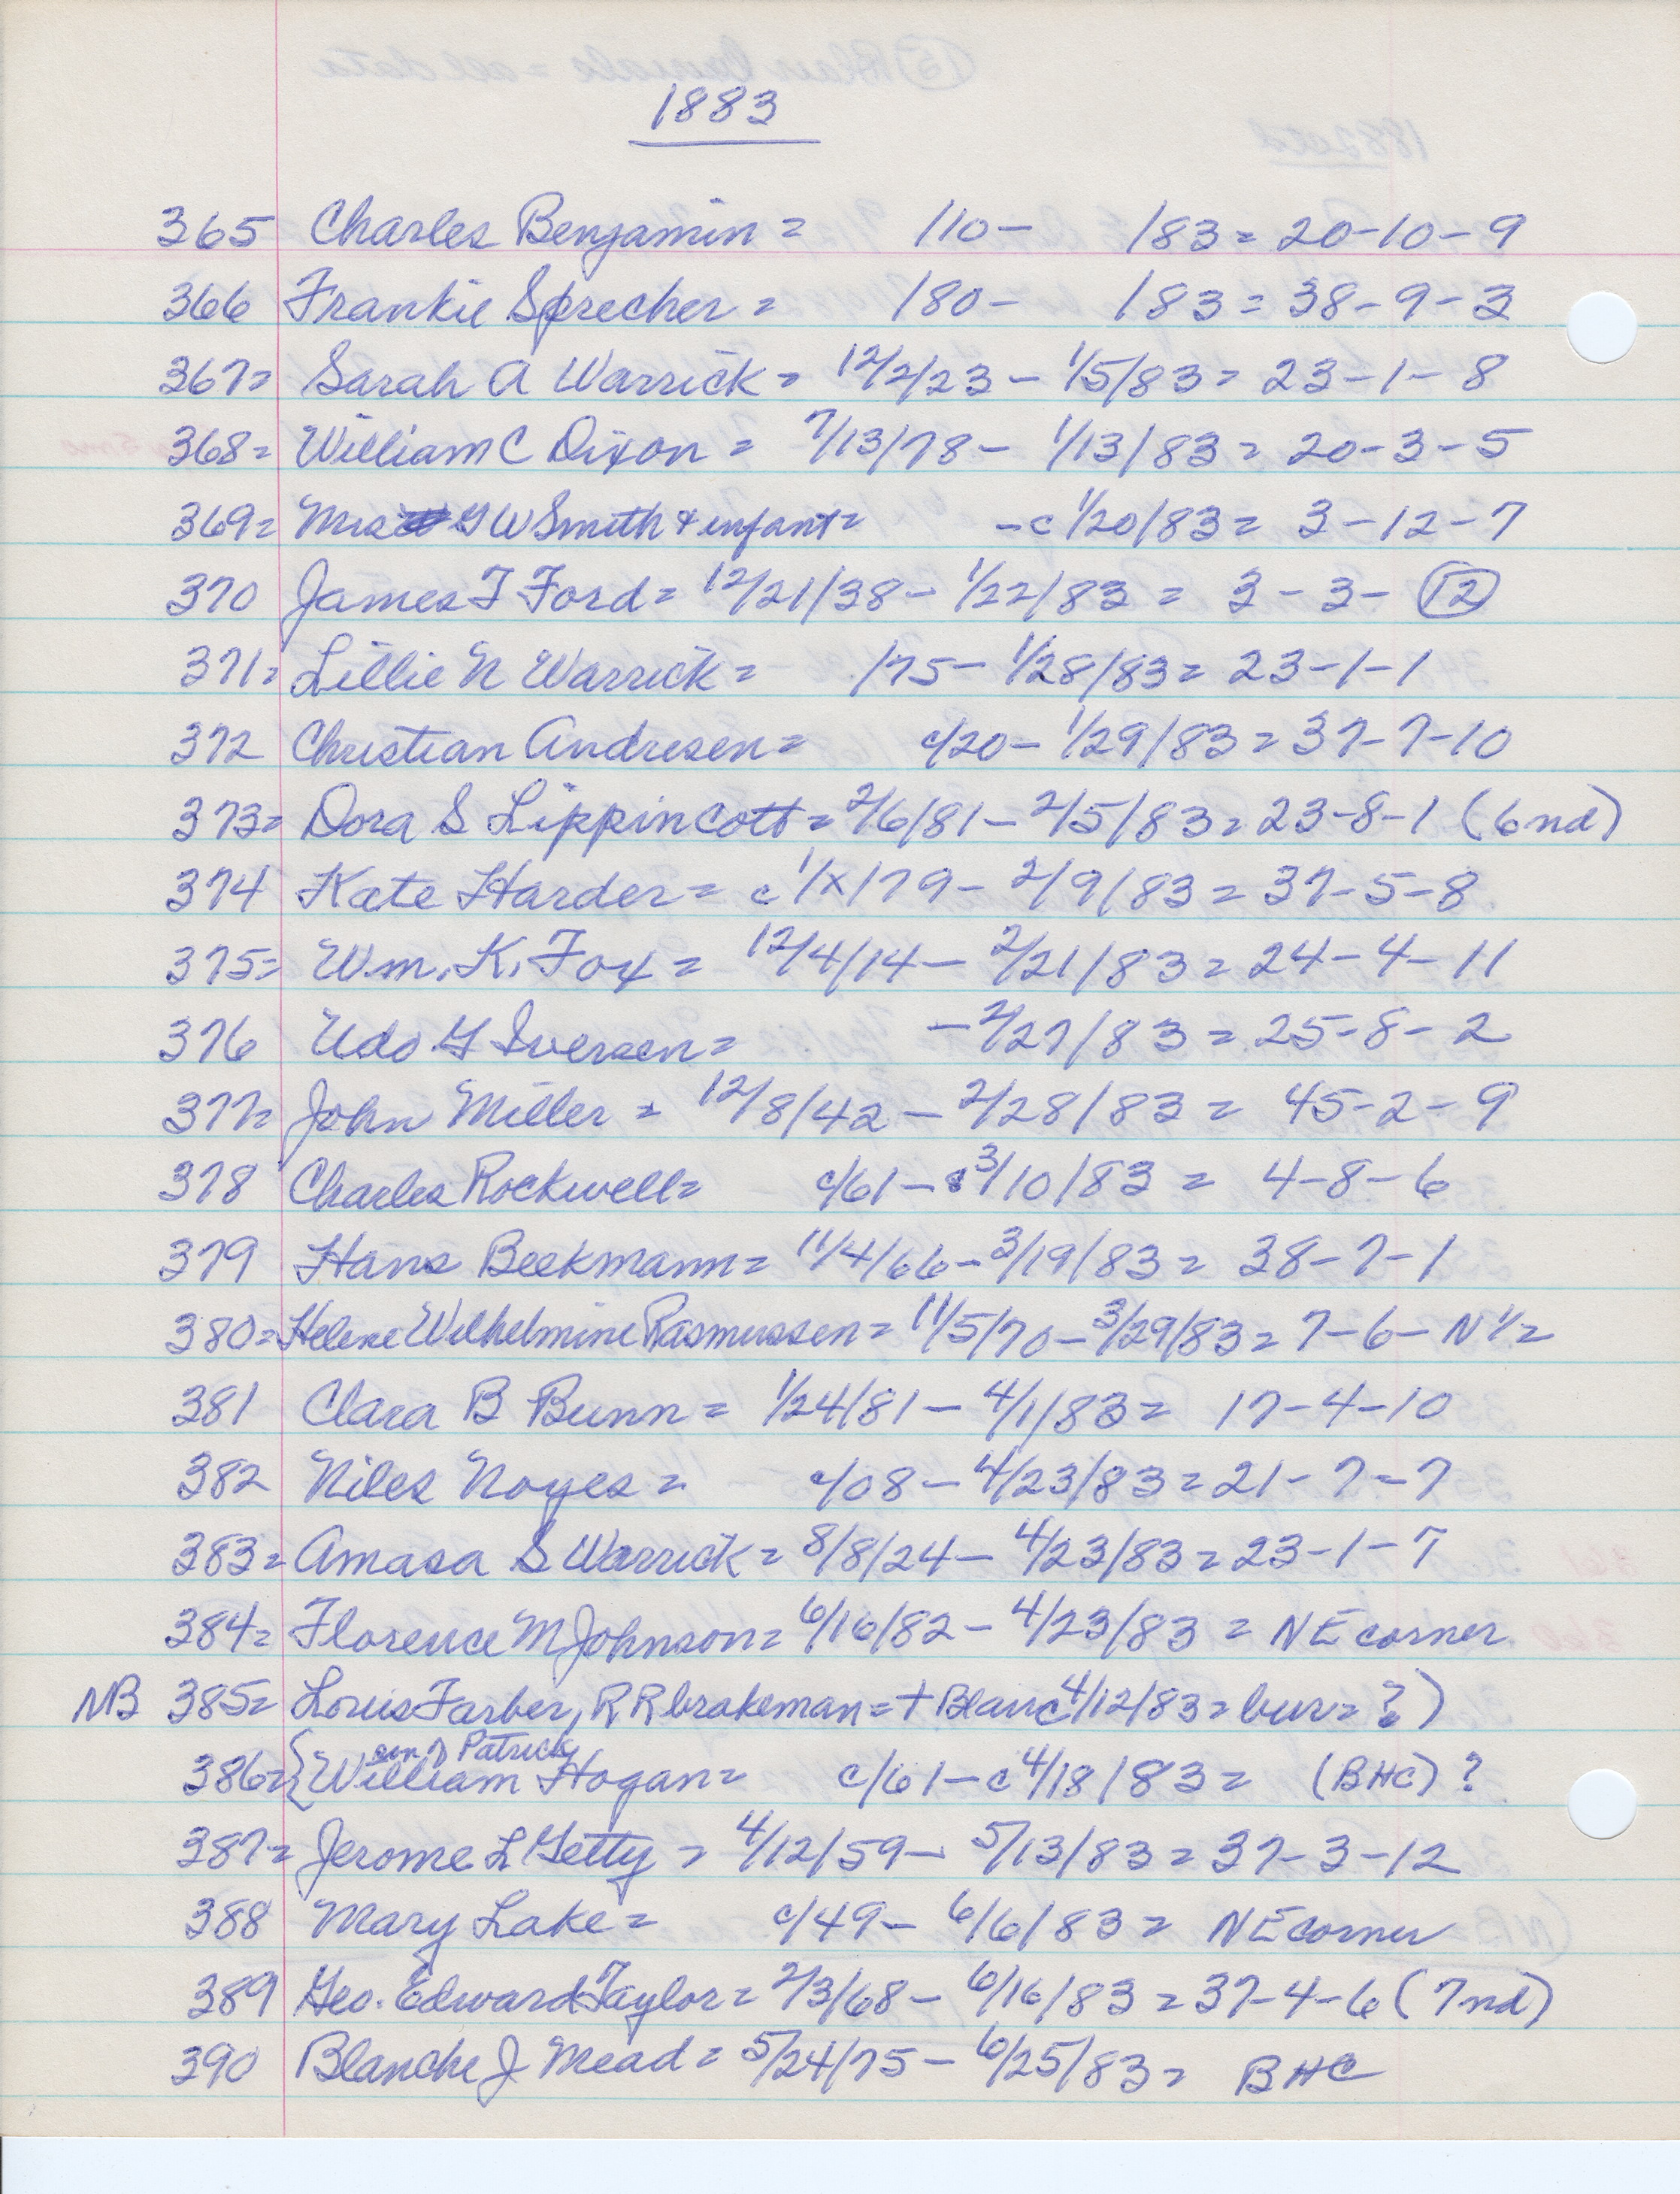 1883
365 Charles Benjamin = /10 - /83 = 20-10-9
366 Frankie Sprecher = /80 - /83 = 38-9-3
367= Sarah A Warrick = 12/2/23 - 1/5/83 = 23-1-8
368= William C Dixon = 7/13/78 - 1/13/83 = 20-3-5
369= Mrs G W Smith & infant = - c 1/20/83 = 3-12-7
370 James T Ford = 12/21/38 - 1/22/83 = 3-3-(12)
371= Lillie N Warrick = /75 - 1/28/83 = 23-1-1
372 Christian Andresen = c/20 - 1/29/83 = 37-7-10
373= Dora S Lippincott = 2/6/81 - 2/5/83 = 23-8-1 (6nd)
374 Kate Harder = c 1/x/79 - 2/9/83 = 37-5-8
375= Wm. K. Fox = 12/4/14 - 2/21/83 = 24-4-11
376 Udo G Iversen = - 2/27/83 = 25-8-2
377= John Miller = 12/8/42 - 2/28/83 = 45-2-9
378 Charles Rockwell = c/61 - 3/10/83 = 4-8-6
379 Hans Beekmann = 11/4/66 - 3/19/83 = 38-7-1
380= Helene Wilhelmine Rasmussen = 11/5/70 - 3/29/83 = 7-6-N 1/2
381 Clara B Bunn = 1/24/81 - 4/1/83 = 17-4-10
382 Niles Noyes = c/08 - 4/23/83 = 21-7-7
383= Amasa S Warrick = 8/8/24 - 4/23/83 = 23-1-7
384= Florence M Johnson = 6/16/82 - 4/23/83 = NE corner
NB 385= Louis Farber, RR brakeman = + Blair c 4/12/83 = bur = ?)
Patrick
386= {William Hogan = c/61 - c 4/18/83 = (BHC) ?
387= Jerome L Getty = 4/12/59 - 5/13/83 = 37-3-12
388 Mary Lake = c/49 - 6/6/83 = NE corner
389 Geo. Edward Taylor = 2/3/68 - 6/16/83 = 37-4-6 (7nd)
390 Blanche J Mead = 5/24/75 - 6/25/83 = BHC